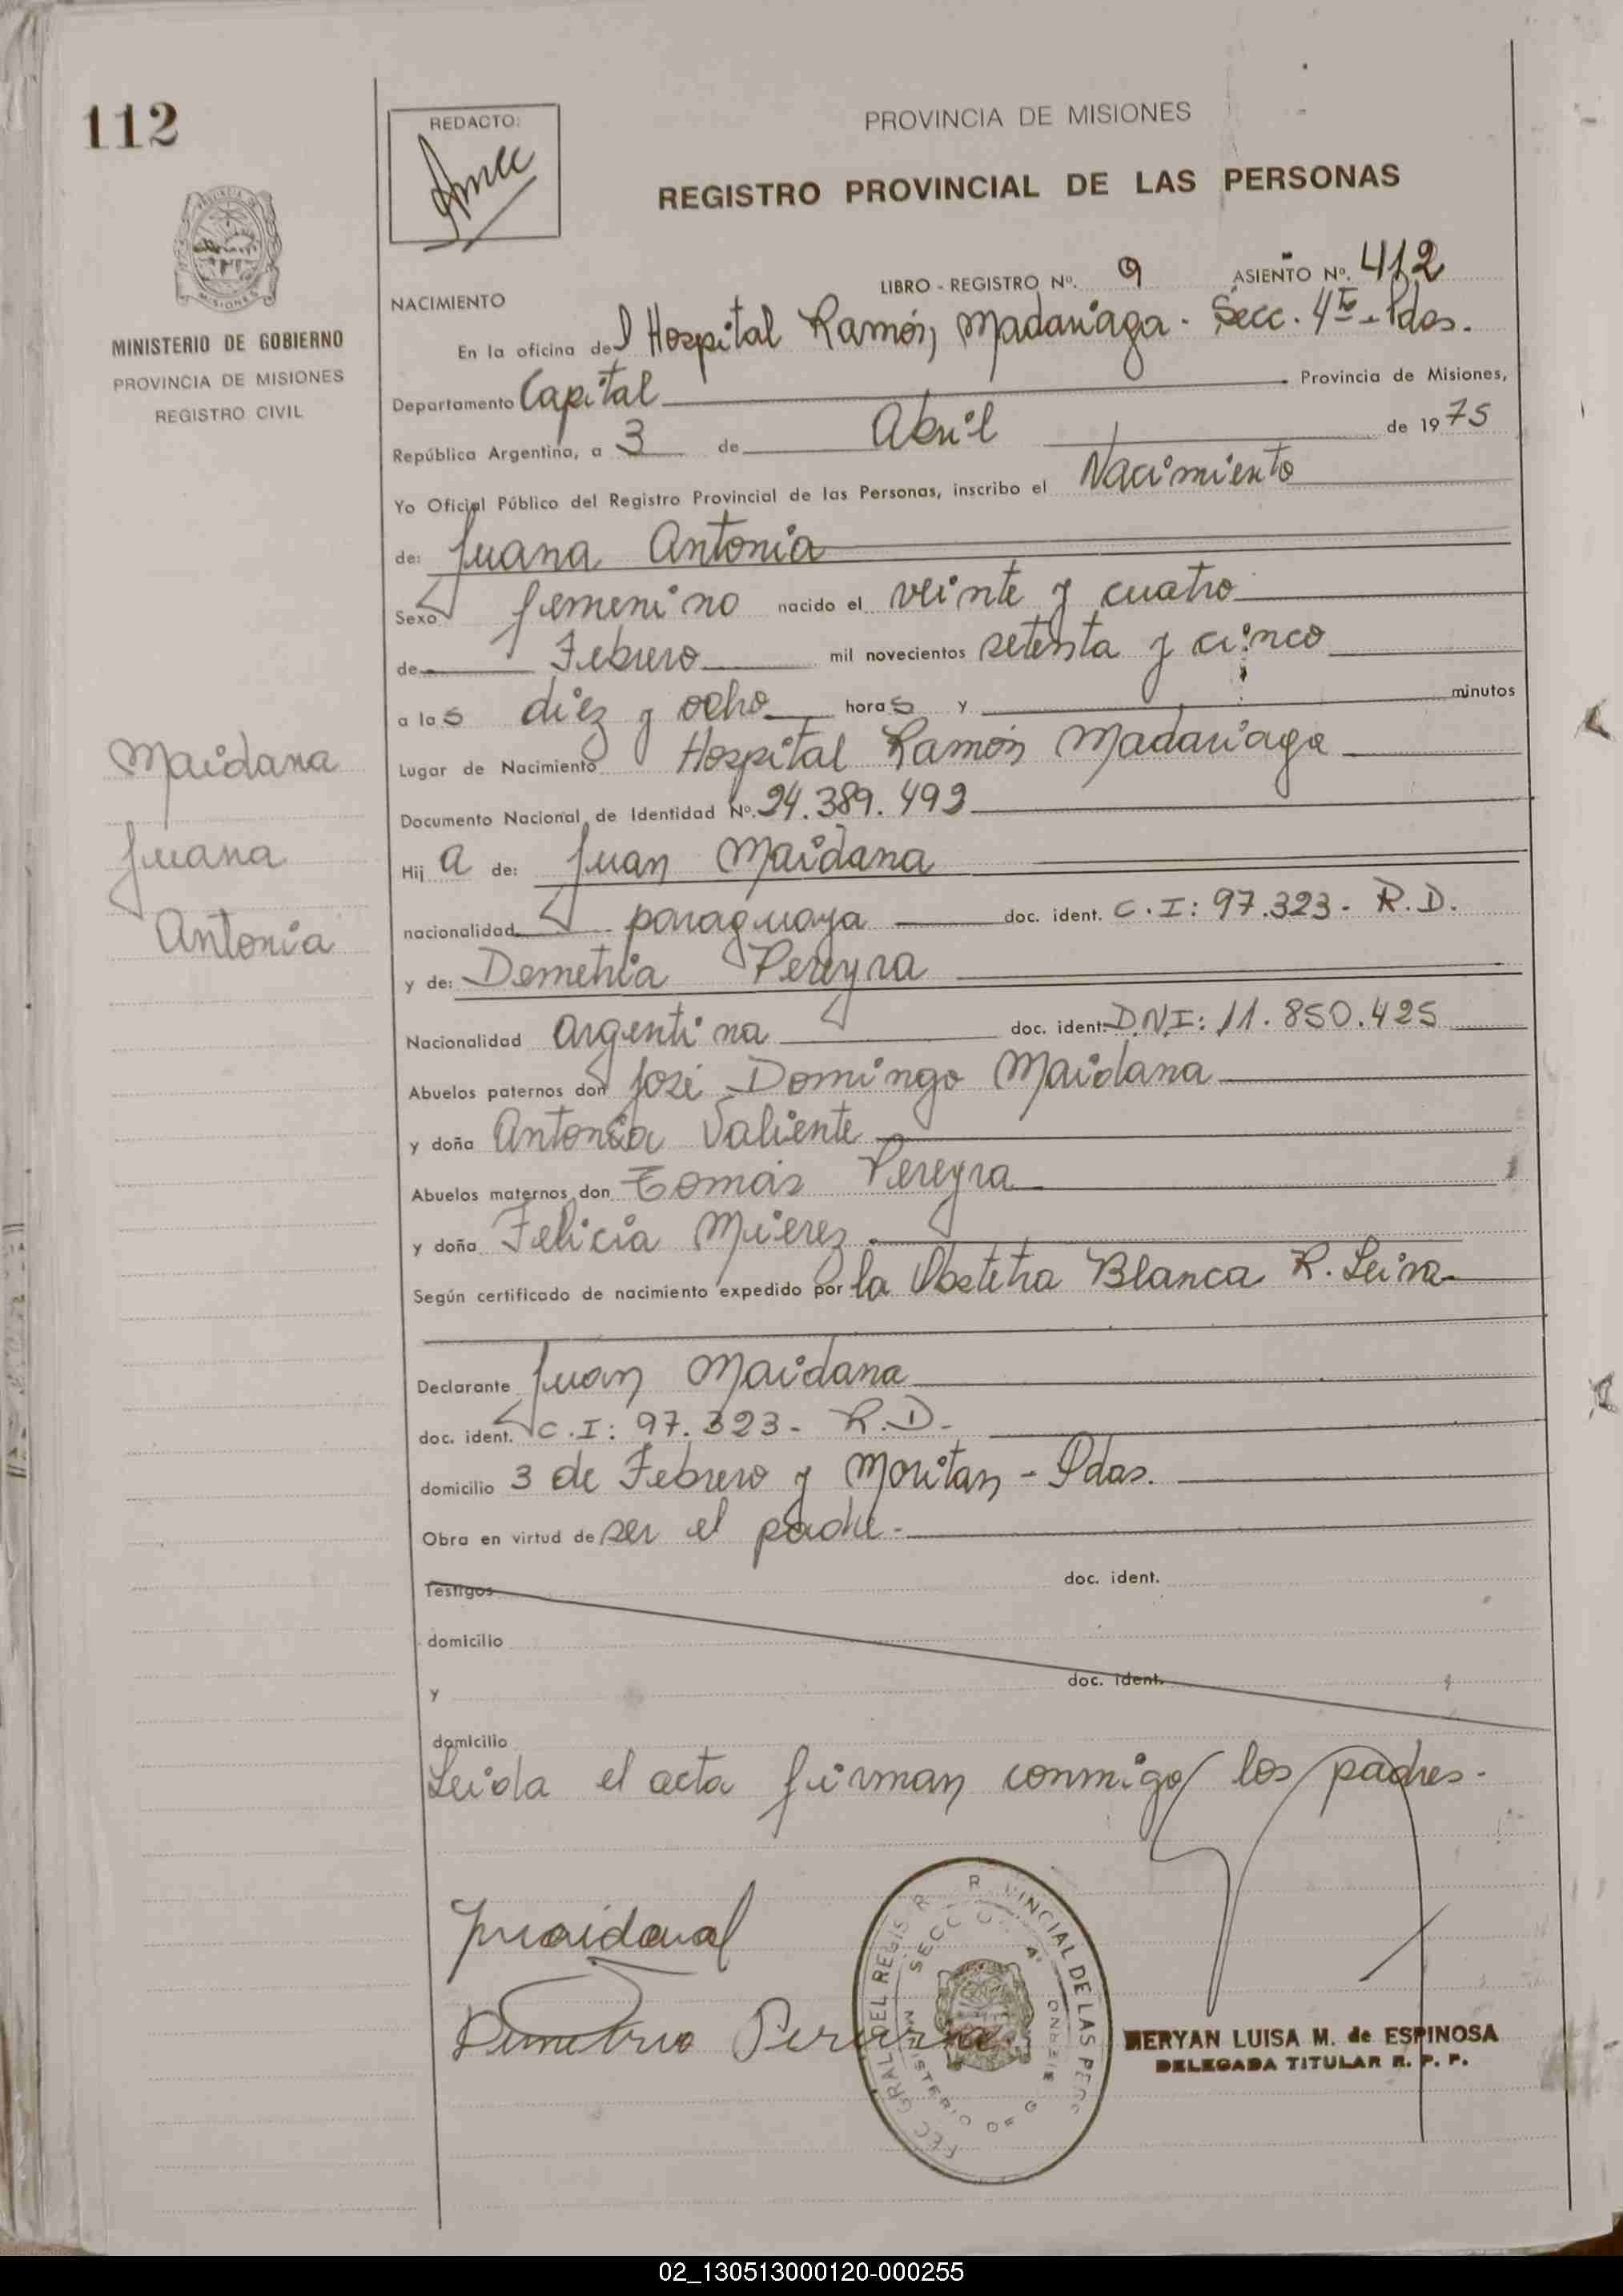 112
REDACTO:
PROVINCIA DE MISIONES
REGISTRO PROVINCIAL DE LAS PERSONAS
LIBRO - REGISTRO Nº. 9 ASIENTO Nº. 412
NACIMIENTO
MINISTERIO DE GOBIERNO
PROVINCIA DE MISIONES
REGISTRO CIVIL
En la oficina del Hospital Ramón Madariaga - Secc. 4ta - Pdas.
Departamento Capital Provincia de Misiones,
República Argentina, a 3 de Abril de 1975
Yo Oficial Público del Registro Provincial de las Personas, inscribo el Nacimiento
de: Juana Antonia
Sexo femenino nacido el veinte y cuatro
de Febrero mil novecientos setenta y cinco
a las diez y ocho horas y minutos
Lugar de Nacimiento Hospital Ramón Madariaga
Documento Nacional de Identidad Nº. 24.389.493
Maidana
Juana
Antonia
Hij a de: Juan Maidana
nacionalidad paraguaya doc. ident. C.I: 97.323- R.D.
y de: Demetria Pereyra
Nacionalidad argentina doc. ident. D.N.I: 11.850.425
Abuelos paternos don José Domingo Maidana
y doña Antonia Valiente
Abuelos maternos don Tomás Pereyra
y doña Felicia Mierez
Según certificado de nacimiento expedido por la Obstetra Blanca R. Leiva-
Declarante Juan Maidana
doc. ident. C.I: 97.323- R.D.
domicilio 3 de Febrero y Moritan - Pdas.
Obra en virtud de ser el padre.
Testigos doc. ident.
domicilio
y doc. ident.
domicilio
Leida el acta firman conmigo los padres.
JMaidanal
Demetria Pereyra
MERYAN LUISA M. de ESPINOSA
DELEGADA TITULAR R. P. P.
02_130513000120-000255